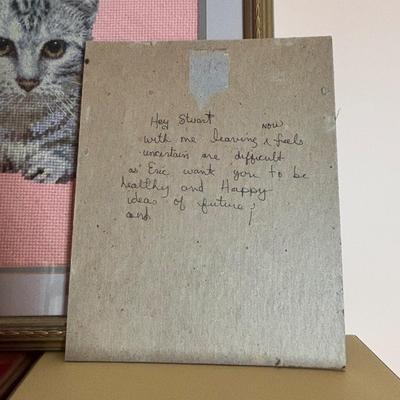 Hey Stuart
now
with me leaving & feels
uncertain are difficult
as Eric want you to be
healthy and Happy
ideas of future;
and